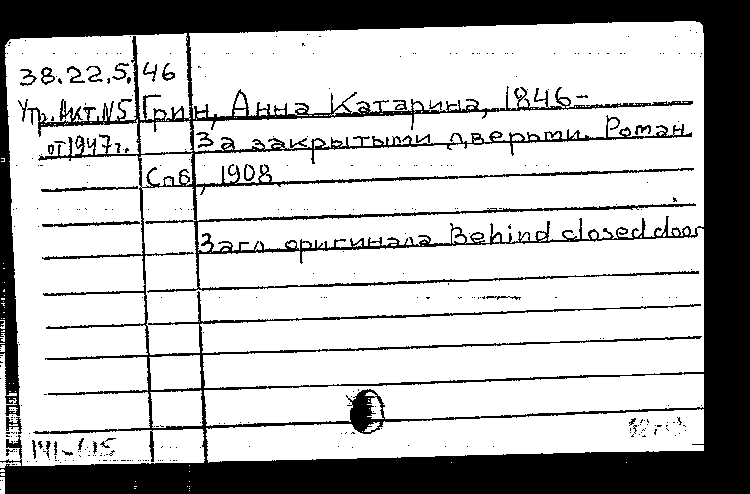 38.22.5.46
Утр. Акт. N5 Грин, Анна Катарина, 1846-
от 1947 г. За закрытыми дверьми. Роман.
Спб, 1908.
Загл оригинала Behind closed door